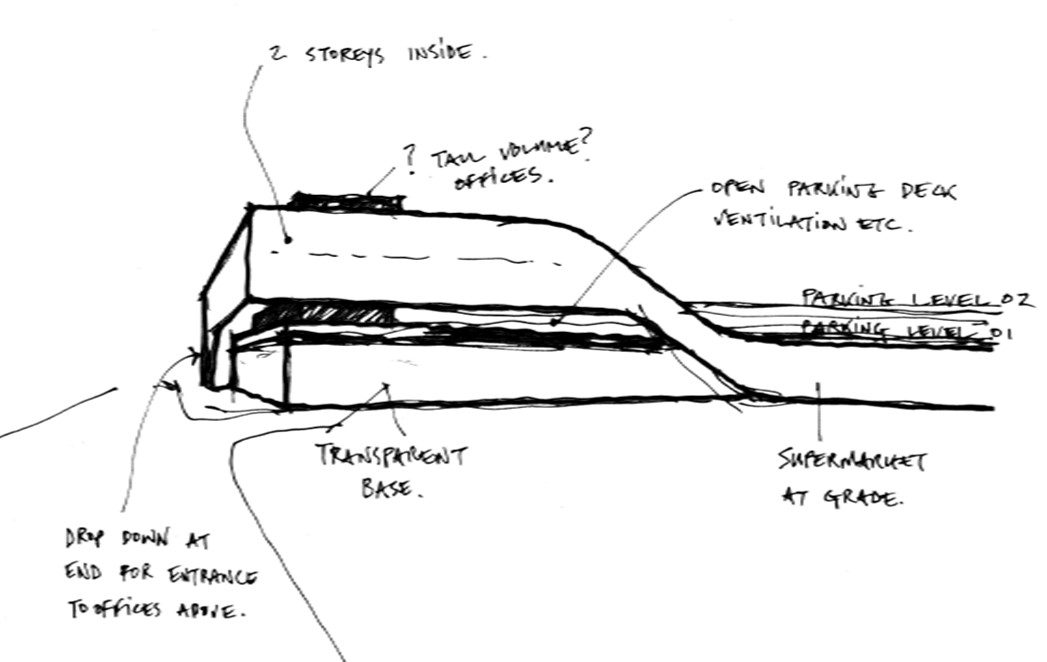 2 STOREYS INSIDE.
? TALL VOLUME?
OFFICES.
OPEN PARKING DECK
VENTILATION ETC.
PARKING LEVEL 02
PARKING LEVEL 01
TRANSPARENT
BASE.
SUPERMARKET
AT GRADE.
DROP DOWN AT
END FOR ENTRANCE
TO OFFICES ABOVE.